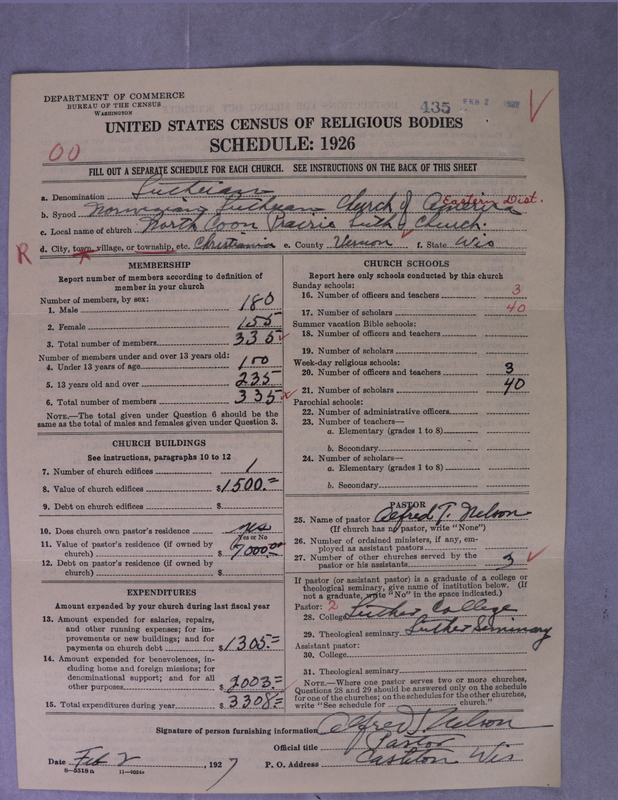 DEPARTMENT OF COMMERCE
BUREAU OF THE CENSUS
WASHINGTON
435 FEB 2 1927
UNITED STATES CENSUS OF RELIGIOUS BODIES
SCHEDULE: 1926
00
FILL OUT A SEPARATE SCHEDULE FOR EACH CHURCH. SEE INSTRUCTIONS ON THE BACK OF THIS SHEET
a. Denomination Lutheran
b. Synod Norwegian Lutheran Church of America Eastern Dist.
c. Local name of church North Coon Prairie Luth. Church.
R d. City, town, village, or township, etc. Christiania e. County Vernon f. State Wis
MEMBERSHIP
Report number of members according to definition of
member in your church
Number of members, by sex:
1. Male 180
2. Female 155
3. Total number of members 335
Number of members under and over 13 years old:
4. Under 13 years of age 100
5. 13 years old and over 235
6. Total number of members 335
NOTE.—The total given under Question 6 should be
same as the total of males and females given under Question 3.
CHURCH BUILDINGS
See instructions, paragraphs 10 to 12
7. Number of church edifices 1
8. Value of church edifices $1500.=
9. Debt on church edifices $
10. Does church own pastor's residence yes
Yes or No
11. Value of pastor's residence (if owned by
church) $7000.00
12. Debt on pastor's residence (if owned by
church) $
EXPENDITURES
Amount expended by your church during last fiscal year
13. Amount expended for salaries, repairs,
and other running expenses; for im-
provements or new buildings; and for
payments on church debt $1305.=
14. Amount expended for benevolences, in-
cluding home and foreign missions; for
denominational support; and for all
other purposes $2003.=
15. Total expenditures during year $3308=
CHURCH SCHOOLS
Report here only schools conducted by this church
Sunday schools:
16. Number of officers and teachers 3
17. Number of scholars 40
Summer vacation Bible schools:
18. Number of officers and teachers
19. Number of scholars
Week-day religious schools:
20. Number of officers and teachers 3
21. Number of scholars 40
Parochial schools:
22. Number of administrative officers
23. Number of teachers—
a. Elementary (grades 1 to 8)
b. Secondary
24. Number of scholars—
a. Elementary (grades 1 to 8)
b. Secondary
PASTOR
25. Name of pastor Alfred T. Nelson
(If church has no pastor, write "None")
26. Number of ordained ministers, if any, em-
ployed as assistant pastors
27. Number of other churches served by the
pastor or his assistants 3
If pastor (or assistant pastor) is a graduate of a college or
theological seminary, give name of institution below. (If
not a graduate, write "No" in the space indicated.)
Pastor: 2
28. College Luther College
29. Theological seminary Luther Seminary
Assistant pastor:
30. College
31. Theological seminary
NOTE.—Where one pastor serves two or more churches,
Questions 28 and 29 should be answered only on the schedule
for one of the churches; on the schedules for the other churches,
write "See schedule for church."
Signature of person furnishing information Alfred T. Nelson
Official title Pastor
Date Feb 2, 1927 P. O. Address Cashton Wis